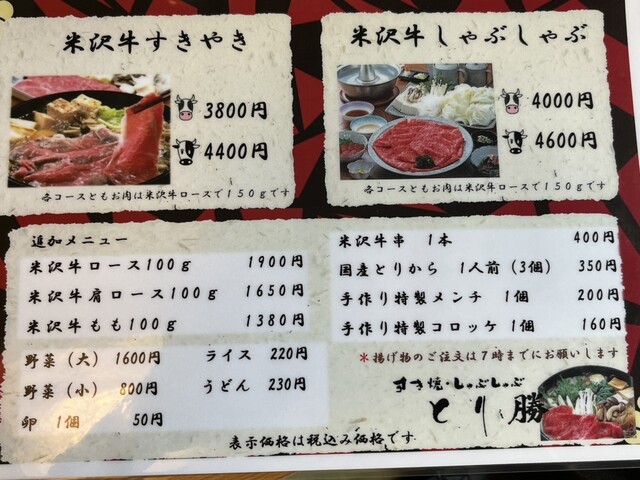 米沢牛すきやき
3800円
4400円
各コースともお肉は米沢牛ロースで150gです
米沢牛しゃぶしゃぶ
4000円
4600円
各コースともお肉は米沢牛ロースで150gです
追加メニュー
米沢牛ロース100g 1900円
米沢牛肩ロース100g 1650円
米沢牛もも100g 1380円
野菜(大) 1600円 ライス 220円
野菜(小) 800円 うどん 230円
卵 1個 50円
米沢牛串 1本 400円
国産とりから 1人前(3個) 350円
手作り特製メンチ 1個 200円
手作り特製コロッケ 1個 160円
*揚げ物のご注文は7時までにお願いします
すき焼・しゃぶしゃぶ
とり勝
表示価格は税込み価格です